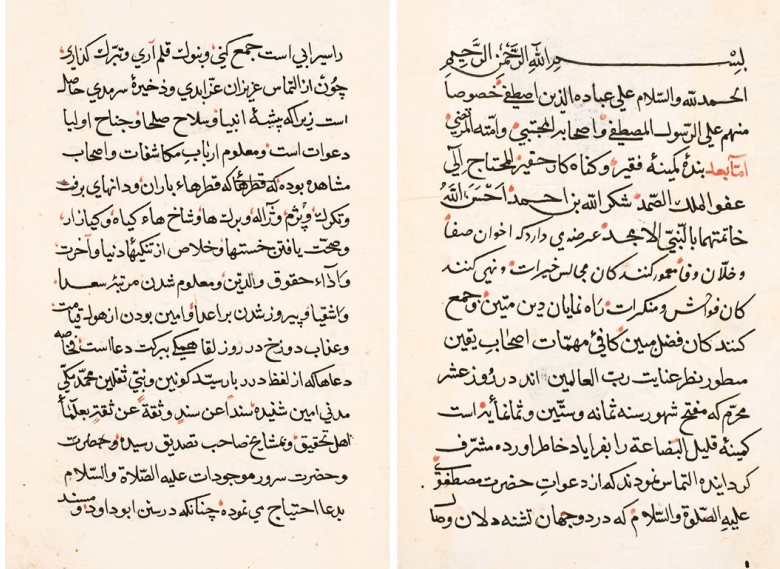 بسم الله الرحمن الرحيم
الحمد لله والسّلام علي عباده الذين اصطفي خصوصا
منهم علي الرّسول المصطفي واصحابه المجتبي وامّته المرتضي
امّا بعد بندهٔ كمينهٔ فقير وكناه كار حقير المحتاج الي
عفو الملك الصّمد شكر الله بن احمد احسن الله
خاتمتهما بالنّبيّ الامجد عرضه مي دارد كه اخوان صفا
وخلّان وفا معمور كنندكان مجالس خيرات ونهي كنند
كان فواحش ومنكرات راه نمايان دين متين وجمع
كنندكان فضل مبين كافئ مهمّات اصحاب يقين
منظور نظر عنايت ربّ العالمين اند در روز عشر
محرّم كه مفتح شهور سنه ثمانه وستّين وثمانمائه است
كمينهٔ قليل البضاعة را بفراياد خاطر اورده مشرّف
كردانيده التماس نمودند كه از دعوات حضرت مصطفوي
عليه الصّلوة والسّلام كه در دو جهان تشنه دلان
را سيرابي است جمع كني وبنوك قلم آري وتبرّك كذاري
چون از التماس عزيزان عزّ ابدي وذخيرهٔ سرمدي حاصل
است زيرا كه پيشهٔ انبيا وسلاح صلحا وجناح اوليا
دعوات است ومعلوم ارباب مكاشفات واصحاب
مشاهده بوده كه قطرها كه قطرهاء باران ودانهاي برف
وتكرك وپژم وژاله وبرك ها وشاخ هاء كياه وكيازار
وصحّت يافتن خستها وخلاص از تنكيها دنيا وآخرت
وادآء حقوق والدين ومعلوم شدن مرتبهٔ سعدا
واشقيا وپيروز شدن بر اعدا وامين بودن از هول قيامت
وعذاب دوزخ در روز لقا همكي ببركت دعا است خاصه
دعاها كه از لفظ درربار سيّد كونين ونبيّ ثقلين محمّد مكّي
مدني امين شنيده سندا عن سند وثقة عن ثقة بعلماء
اهل تحقيق وبمشايخ صاحب تصديق رسيده وحضرت
وحضرت سرور موجودات عليه الصّلاة والسّلام
بدعا احتياج مي نموده چنانكه در سنن ابو داود ومسند